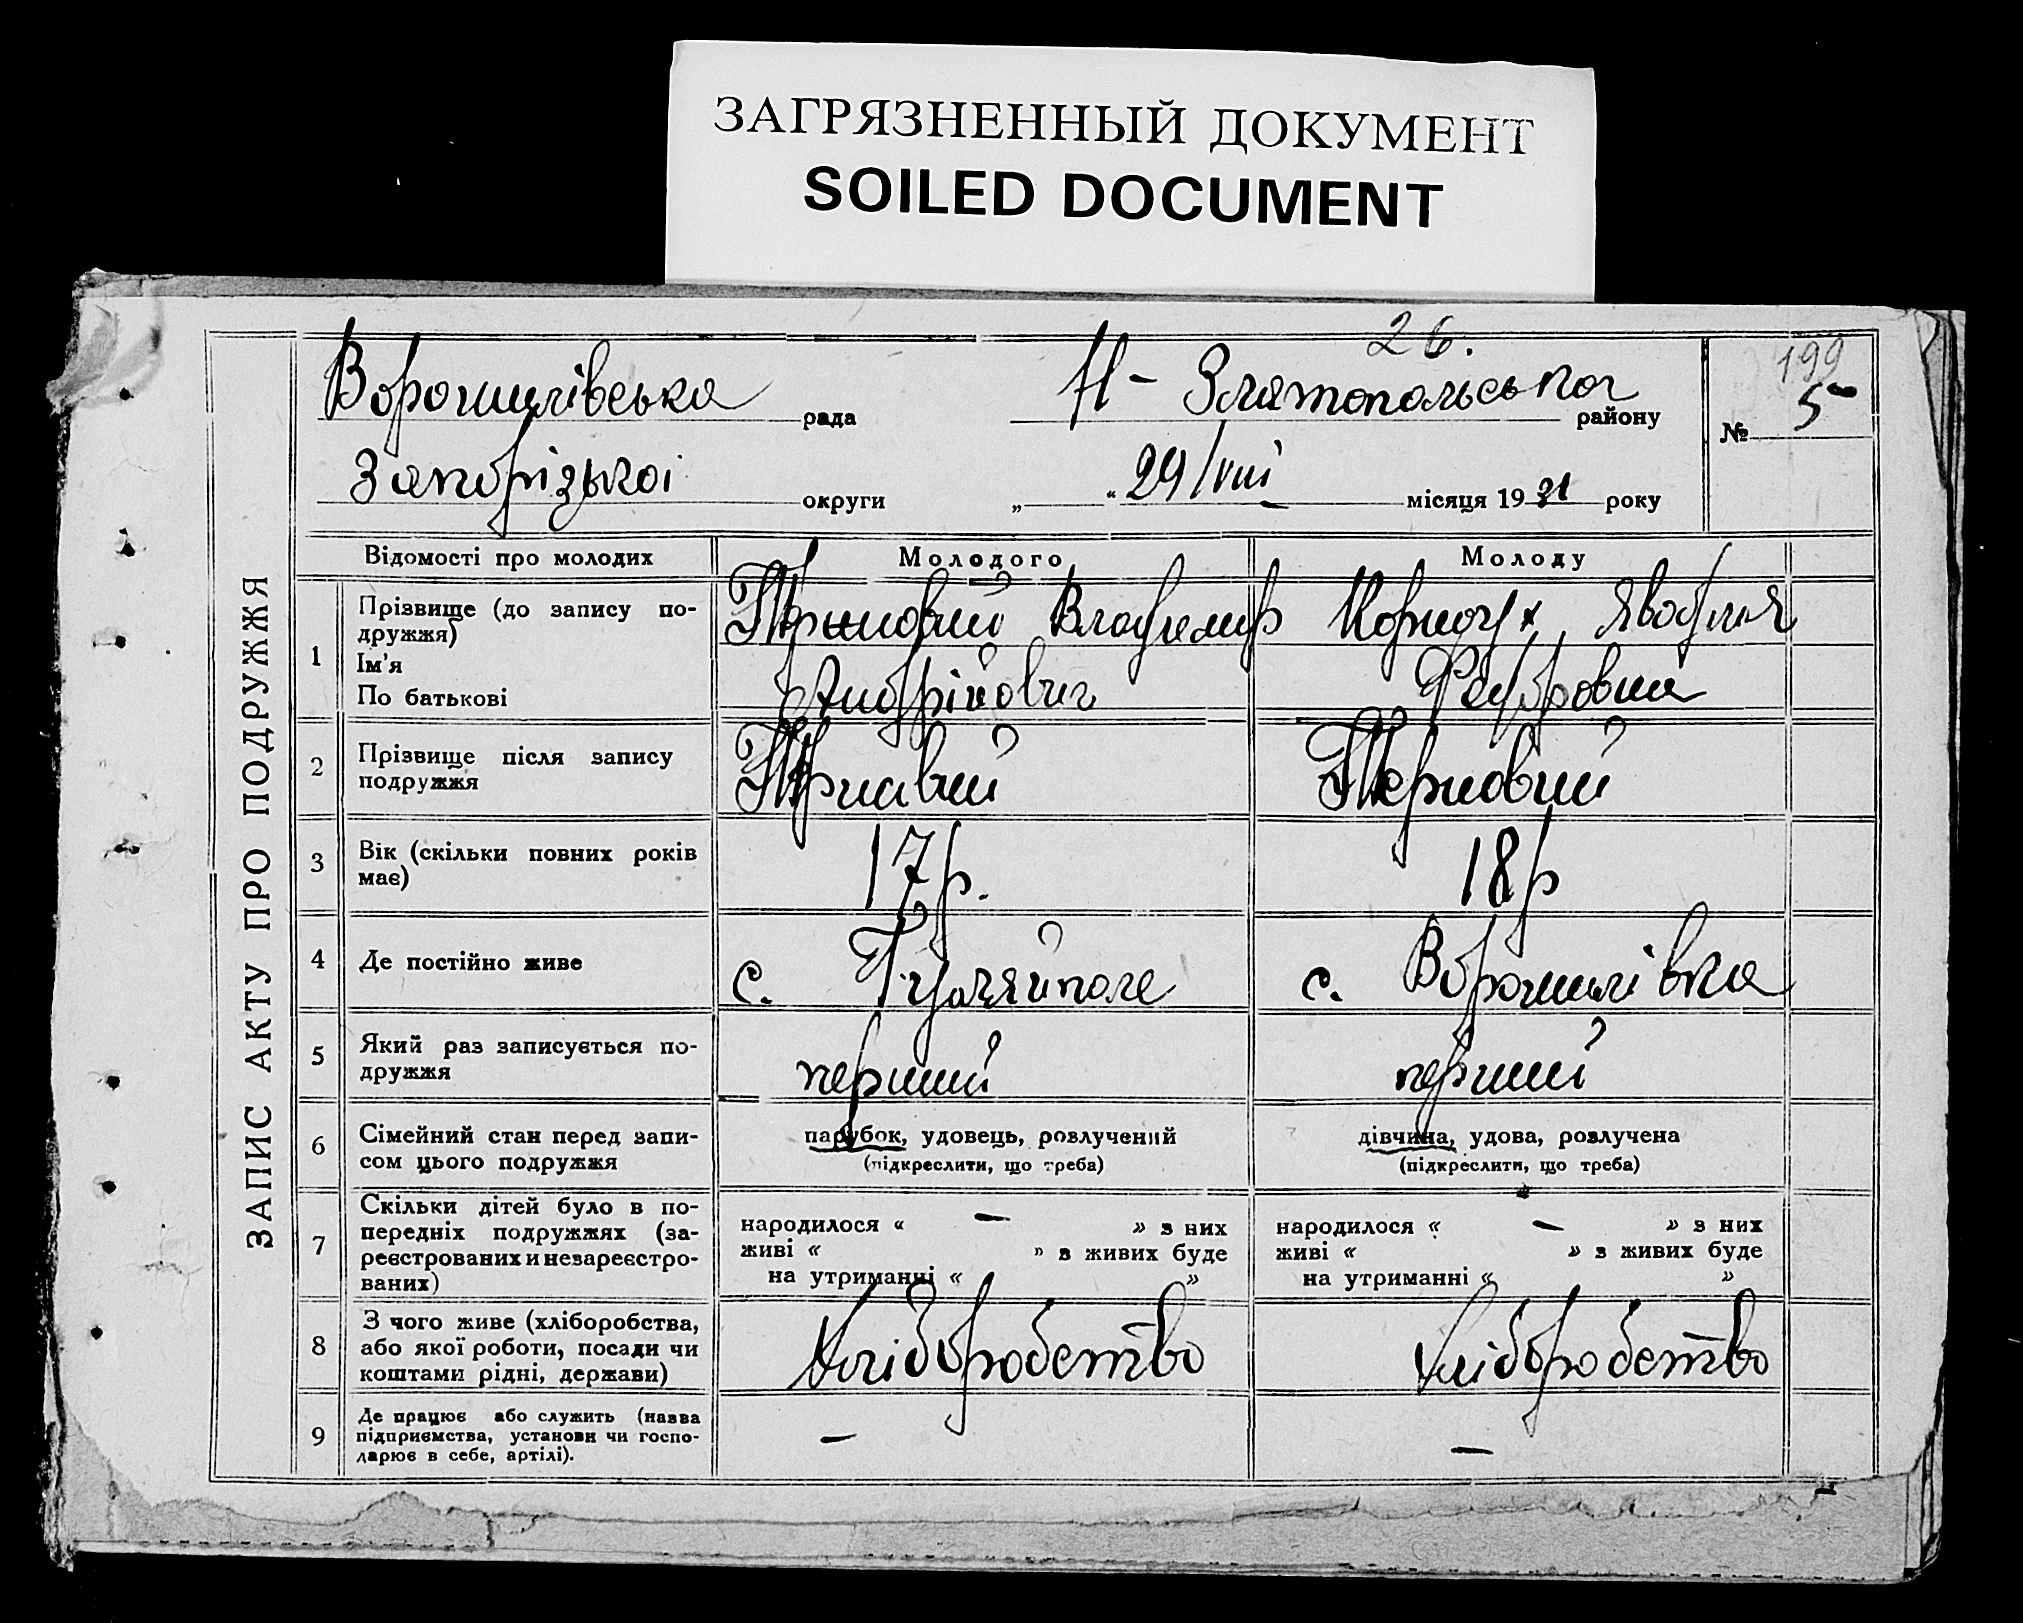 ЗАГРЯЗНЕННЫЙ ДОКУМЕНТ
SOILED DOCUMENT
26.
199
Ворошилівська рада Н-Златопольського району № 5
Запорізької округи „ “ 29/VIII місяця 1931 року
ЗАПИС АКТУ ПРО ПОДРУЖЖЯ
Відомості про молодих Молодого Молоду
1 Прізвище (до запису подружжя) Ім'я По батькові
Терновий Владимир
Андрійович
Явдокия
Федоровна
2 Прізвище після запису подружжя
Терновий Терновий
3 Вік (скільки повних років має)
17 р. 18 р
4 Де постійно живе
с. Гуляйполе с. Ворошилівка
5 Який раз записується подружжя
перший перший
6 Сімейний стан перед записом цього подружжя
парубок, удовець, розлучений дівчина, удова, розлучена
(підкреслити, що треба) (підкреслити, що треба)
7 Скільки дітей було в попередніх подружжях (зареєстрованих и незареєстрованих)
народилося « — » з них народилося « — » з них
живі « » з живих буде живі « » з живих буде
на утриманні « » на утриманні « »
8 З чого живе (хліборобства, або якої роботи, посади чи коштами рідні, держави)
хліборобство хліборобство
9 Де працює або служить (назва підприємства, установи чи господарює в себе, артілі).
— —